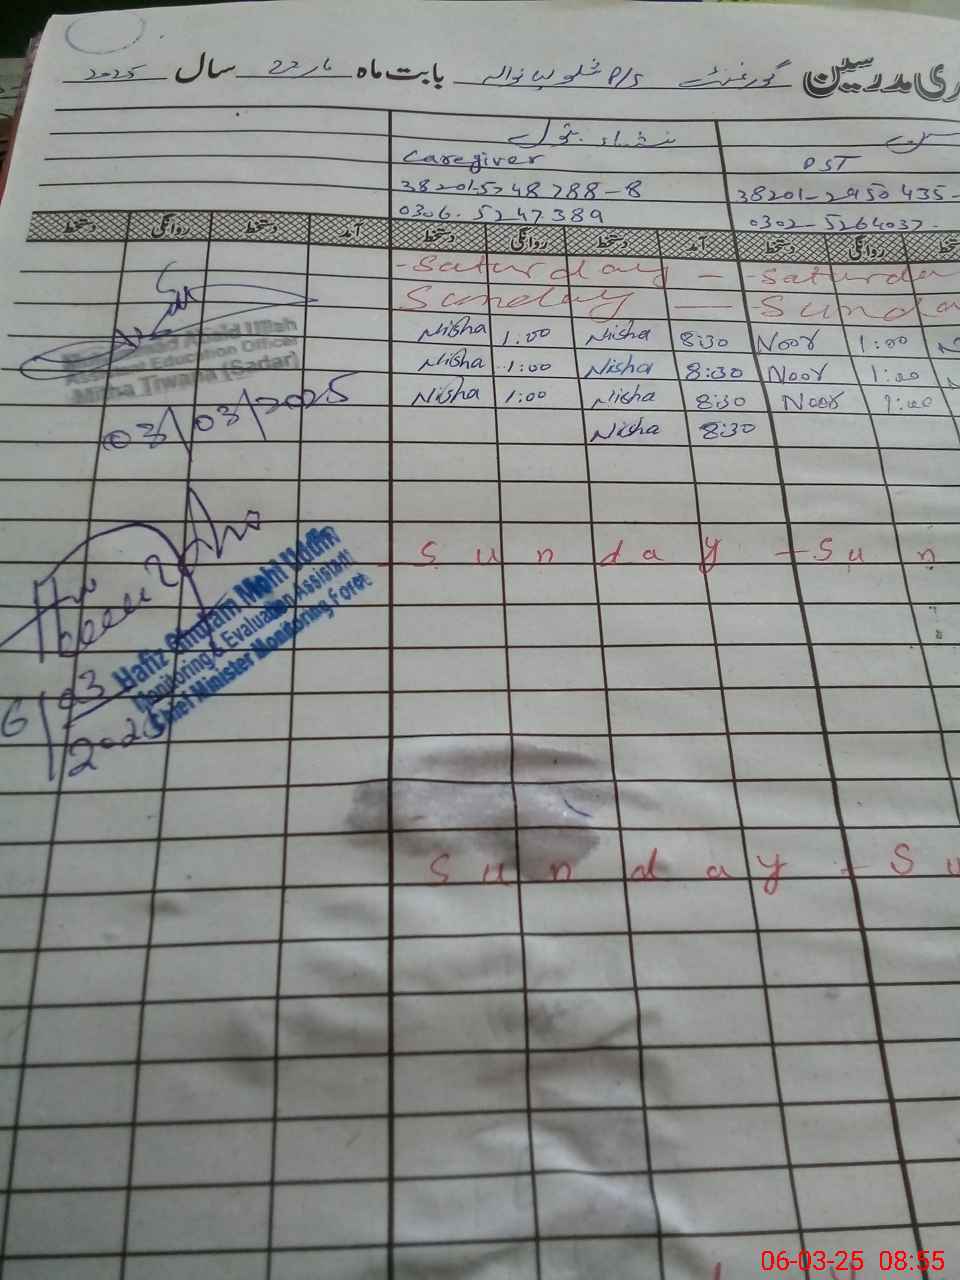 ری مدرسین گورنمنٹ P/S بابت ماہ مارچ 22 سال 2025
Caregiver PST
38201-5248788-8 38201-2950435-
0306-5247389 0302-5264037
دستخط روانگی دستخط آمد دستخط روانگی دستخط آمد دستخط روانگی
-Saturday - -Saturda
Sunday - Sunda
Nisha 1:00 Nisha 8:30 Noor 1:00
Nisha 1:00 Nisha 8:30 Noor 1:00
Nisha 1:00 Nisha 8:30 Noor 1:00
Nisha 8:30
Assistant Education Officer
Mitha Tiwana (Sadar)
03/03/2025
Sunday - Sun
Hafiz Ghulam Mohi Uddin
Monitoring & Evaluation Assistant
Chief Minister Monitoring Force
6/03
Sunday - Su
06-03-25 08:55